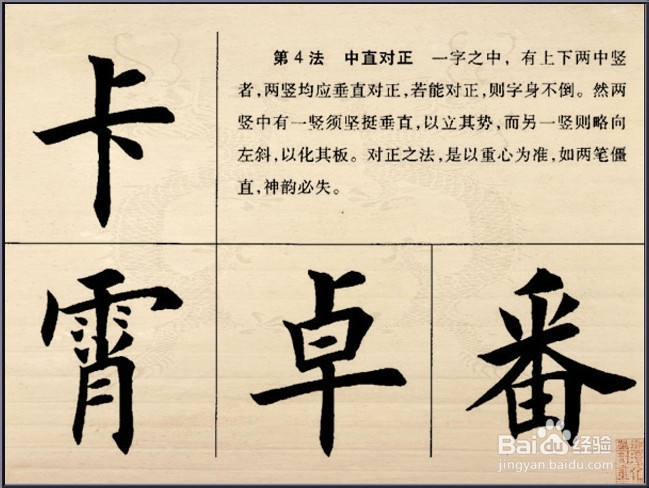 第4法 中直对正 一字之中，有上下两中竖
者，两竖均应垂直对正，若能对正，则字身不倒。然两
竖中有一竖须坚挺垂直，以立其势，而另一竖则略向
左斜，以化其板。对正之法，是以重心为准，如两笔僵
直，神韵必失。
卡
霄 卓 番
Baidu 经验
jingyan.baidu.com